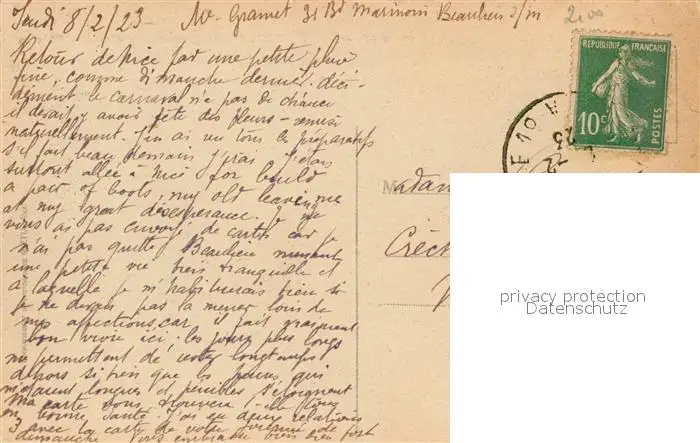 Jeudi 8/2/23 - Mr Gramet 31 Bd Marinoni Beaulieu s/m
Retour de Nice par une petite pluie
fine, comme dimanche dernier. déci-
dément le carnaval n'a pas de chance
il devait y avoir fête des fleurs - remise
naturellement. j'en ai vu tous les préparatifs
S'il fait beau demain j'irai. J'étais
surtout allée à Nice for build
a pair of boots, my old leaving me
at my great désespérance. Je ne
vous ai pas envoyé de cartes car je
n'ai pas quitté Beaulieu menant
une petite vie très tranquille et
à laquelle je m'habituerais bien si
je ne devais pas la mener loin de
mes affections, car il fait vraiment
bon vivre ici; les jours plus longs
me permettent de rester longtemps
dehors si bien que les heures qui
m'étaient longues et pénibles s'éloignent
Ma carte vous trouvera-t-elle tous
en bonne santé? J'ai eu
3 avec la carte de votre journée de
dimanche Vous embrasse bien bien fort
REPUBLIQUE FRANÇAISE
10c
POSTES
Madam
Crèc
privacy protection
Datenschutz